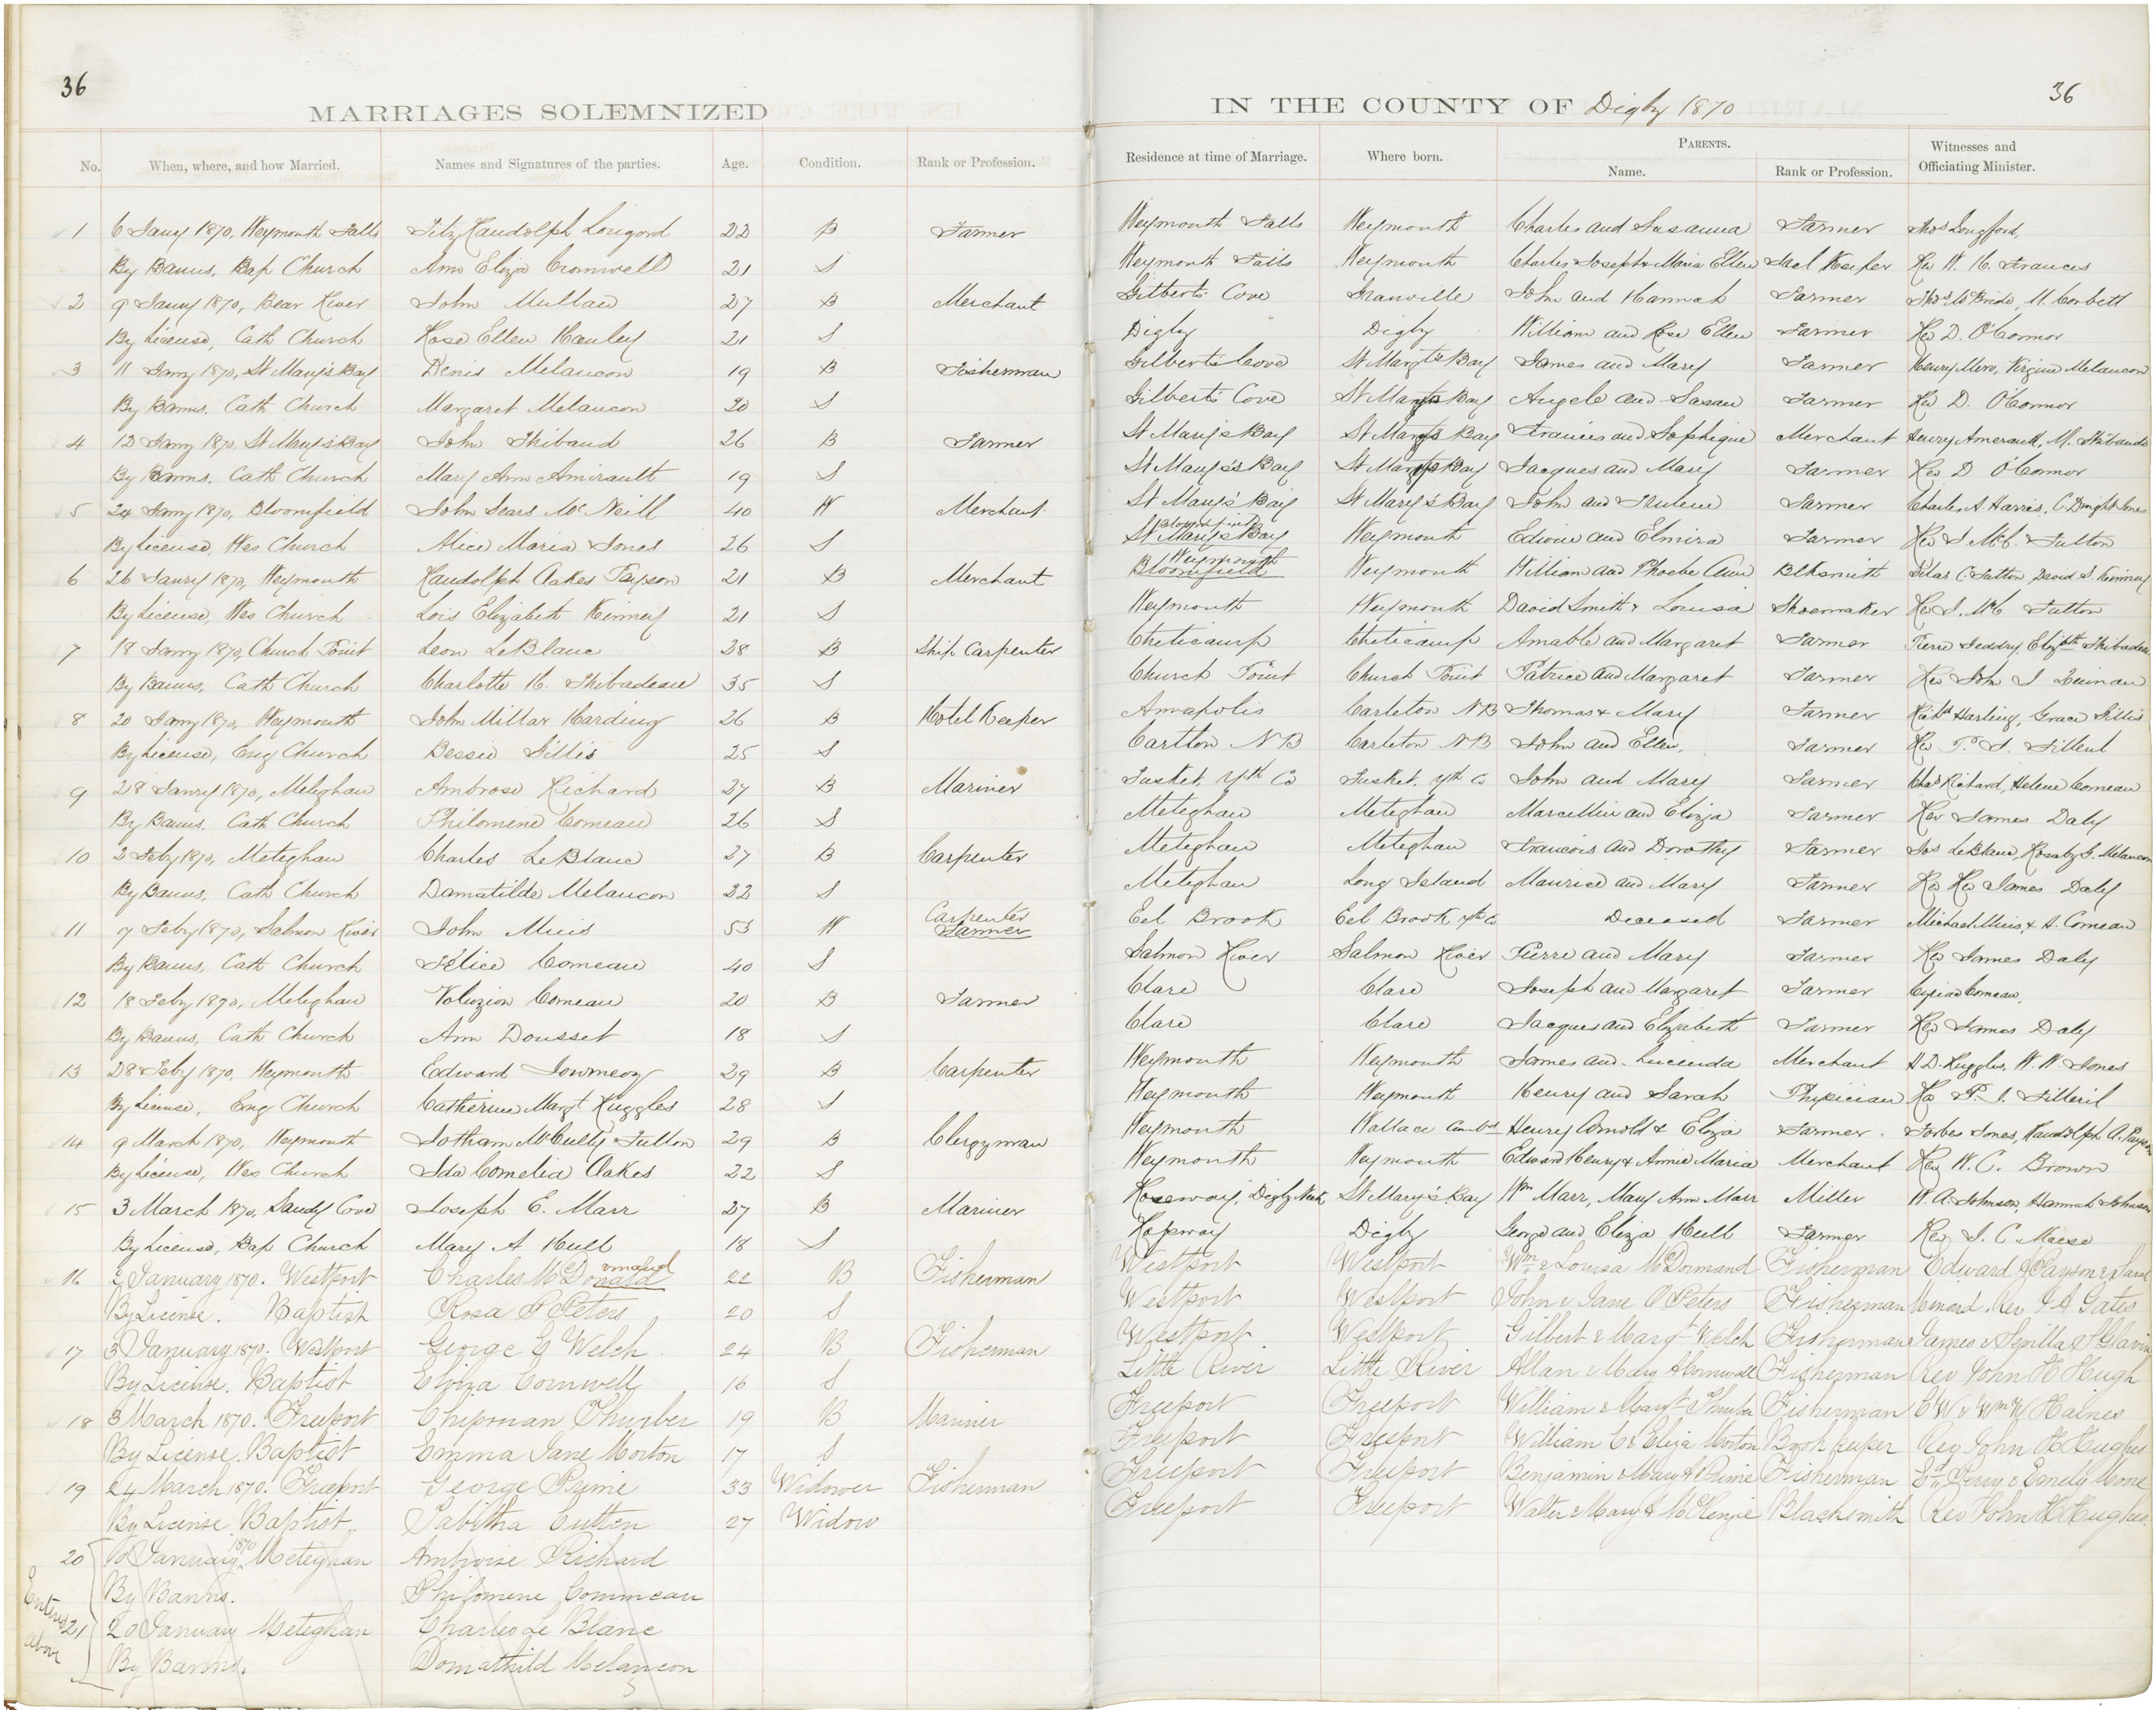 36
36
MARRIAGES SOLEMNIZED IN THE COUNTY OF Digby 1870
No. When, where, and how Married. Names and Signatures of the parties. Age. Condition. Rank or Profession. Residence at time of Marriage. Where born. PARENTS. Name. Rank or Profession. Witnesses and Officiating Minister.
1 6 Jany 1870, Weymouth Falls Fitz Randolph Longord 22 B Farmer Weymouth Falls Weymouth Charles and Susanna Farmer Thos Longford,
By Banns, Bap Church Ann Eliza Cromwell 21 S Weymouth Falls Weymouth Charles Joseph & Maria Ellen Jail Keeper Rev W. H. Frances
2 9 Jany 1870, Bear River John Mullan 27 B Merchant Gilberts Cove Granville John and Hannah Farmer Thos McBride, M. Corbett
By License, Cath Church Rose Ellen Hanley 21 S Digby Digby William and Rose Ellen Farmer Rev D. O'Connor
3 11 Jany 1870, St Mary's Bay Denis Melancon 19 B Fisherman Gilberts Cove St Mary's Bay James and Mary Farmer Henry Mero, Virginie Melancon
By Banns, Cath Church Margaret Melancon 20 S Gilberts Cove St Mary's Bay Angele and Susan Farmer Rev D. O'Connor
4 12 Jany 1870, St Mary's Bay John Thibaud 26 B Farmer St Mary's Bay St Mary's Bay Francis and Sophique Merchant Henry Amerault, M. Thibaudo
By Banns, Cath Church Mary Ann Amirault 19 S St Mary's Bay St Mary's Bay Jacques and Mary Farmer Rev D O'Connor
5 24 Jany 1870, Bloomfield John Sears McNeill 40 W Merchant St Mary's Bay St Mary's Bay John and Farmer Charles A. Harris, C. Dwight Jones
By License, Wes Church Alice Maria Jones 26 S Bloomfield St Mary's Bay Weymouth Edwin and Elmira Farmer Rev J. McC. Fulton
6 26 Janry 1870, Weymouth Randolph Oakes Payson 21 B Merchant Weymouth Bloomfield Weymouth William and Phoebe Ann Blksmith Silas C. Fulton, David S. Kinney
By License, Wes Church Lois Elizabeth Kinney 21 S Weymouth Weymouth David Smith & Louisa Shoemaker Rev J. McC. Fulton
7 18 Jany 1870, Church Point Leon LeBlanc 28 B Ship Carpenter Cheticamp Cheticamp Amable and Margaret Farmer Pierre Geddry, Elizbth Thibadeau
By Banns, Cath Church Charlotte H. Thibadeau 35 S Church Point Church Point Patrice and Margaret Farmer Rev John J Quinan
8 20 Jany 1870, Weymouth John Millar Harding 26 B Hotel Keeper Annapolis Carleton NB Thomas & Mary Farmer Richd Harding, Grace Gillis
By License, Eng Church Bessie Gillis 25 S Carlton NB Carleton NB John and Ellen, Farmer Rev P. J. Filleul
9 28 Janry 1870, Meteghan Ambrose Richard 27 B Mariner Tusket, Yth Co Tusket, Yth Co John and Mary Farmer Chas Richard, Helene Comeau
By Banns, Cath Church Philomene Comeau 26 S Meteghan Meteghan Marcellin and Eliza Farmer Rev James Daly
10 2 Feby 1870, Meteghan Charles LeBlanc 27 B Carpenter Meteghan Meteghan Francois and Dorothy Farmer Jos LeBlanc, G. Melancon
By Banns, Cath Church Damatilde Melancon 22 S Meteghan Long Island Maurice and Mary Farmer Rev Rev James Daly
11 7 Feby 1870, Salmon River John Muis 53 W Carpenter Farmer Eel Brook Eel Brook Yth Co Deceased Farmer Michael Muis, & A. Comeau
By Banns, Cath Church Félice Comeau 40 S Salmon River Salmon River Pierre and Mary Farmer Rev James Daly
12 18 Feby 1870, Meteghan Voluzion Comeau 20 B Farmer Clare Clare Joseph and Margaret Farmer Comeau,
By Banns, Cath Church Ann Dousset 18 S Clare Clare Jacques and Elizabeth Farmer Rev James Daly
13 28 Feby 1870, Weymouth Edward Journeay 29 B Carpenter Weymouth Weymouth James and Lucinda Merchant H D. Ruggles, W. W. Jones
By License, Eng Church Catherine Margt Ruggles 28 S Weymouth Weymouth Henry and Sarah Physician Rev P. J. Filleul
14 9 March 1870, Weymouth Jotham McCully Fulton 29 B Clergyman Weymouth Wallace Cumbd Henry Arnold & Eliza Farmer. Forbes Jones, Randolph A. Payson
By License, Wes Church Ida Cornelia Oakes 22 S Weymouth Weymouth Edward Henry & Annie Maria Merchant Rev W. C. Brown
15 3 March 1870, Sandy Cove Joseph E. Marr 27 B Mariner Roseway, Digby Neck St Mary's Bay Wm Marr, Mary Ann Marr Miller W. A. Johnson, Hannah Johnson
By License, Bap Church Mary A Hull 18 S Digby George and Eliza Hull Farmer Rev J. C. Morse
16 2 January 1870. Westport Charles McDonald rmand 22 B Fisherman Westport Westport Wm & Louisa McDormand Fisherman Edward J Payson & Sarah
By License. Baptist Rosa P Peters 20 S Westport Westport John & Jane P Peters Fisherman Rev J A Gates
17 3 January 1870. Westport George G Welch 24 B Fisherman Westport Westport Gilbert & Margt Welch Fisherman James & Sevilla S Glavin
By License. Baptist Eliza Cornwell 16 S Little River Little River Allan & Mary A Cornwell Fisherman Rev John H Hugh
18 3 March 1870. Freeport Chipman Thurber 19 B Mariner Freeport Freeport William & Margt Thurber Fisherman C W & Wm W Haines
By License. Baptist Emma Jane Morton 17 S Freeport Freeport William C & Eliza Morton Book keeper Rev John H Hughes
19 24 March 1870. Freeport George Prime 33 Widower Fisherman Freeport Freeport Benjamin & Mary A Prime Fisherman Ed Perry & Emely Mone
By License Baptist Tabitha Cutten 27 Widow Freeport Freeport Walter & Mary A McKenzie Blacksmith Rev John H Hughes.
20 10 January 1870 Meteghan Ambroise Richard
By Banns. Philomene Commeau
Entered above
21 20 January Meteghan Charles Le Blanc
By Banns. Domathild Melancon